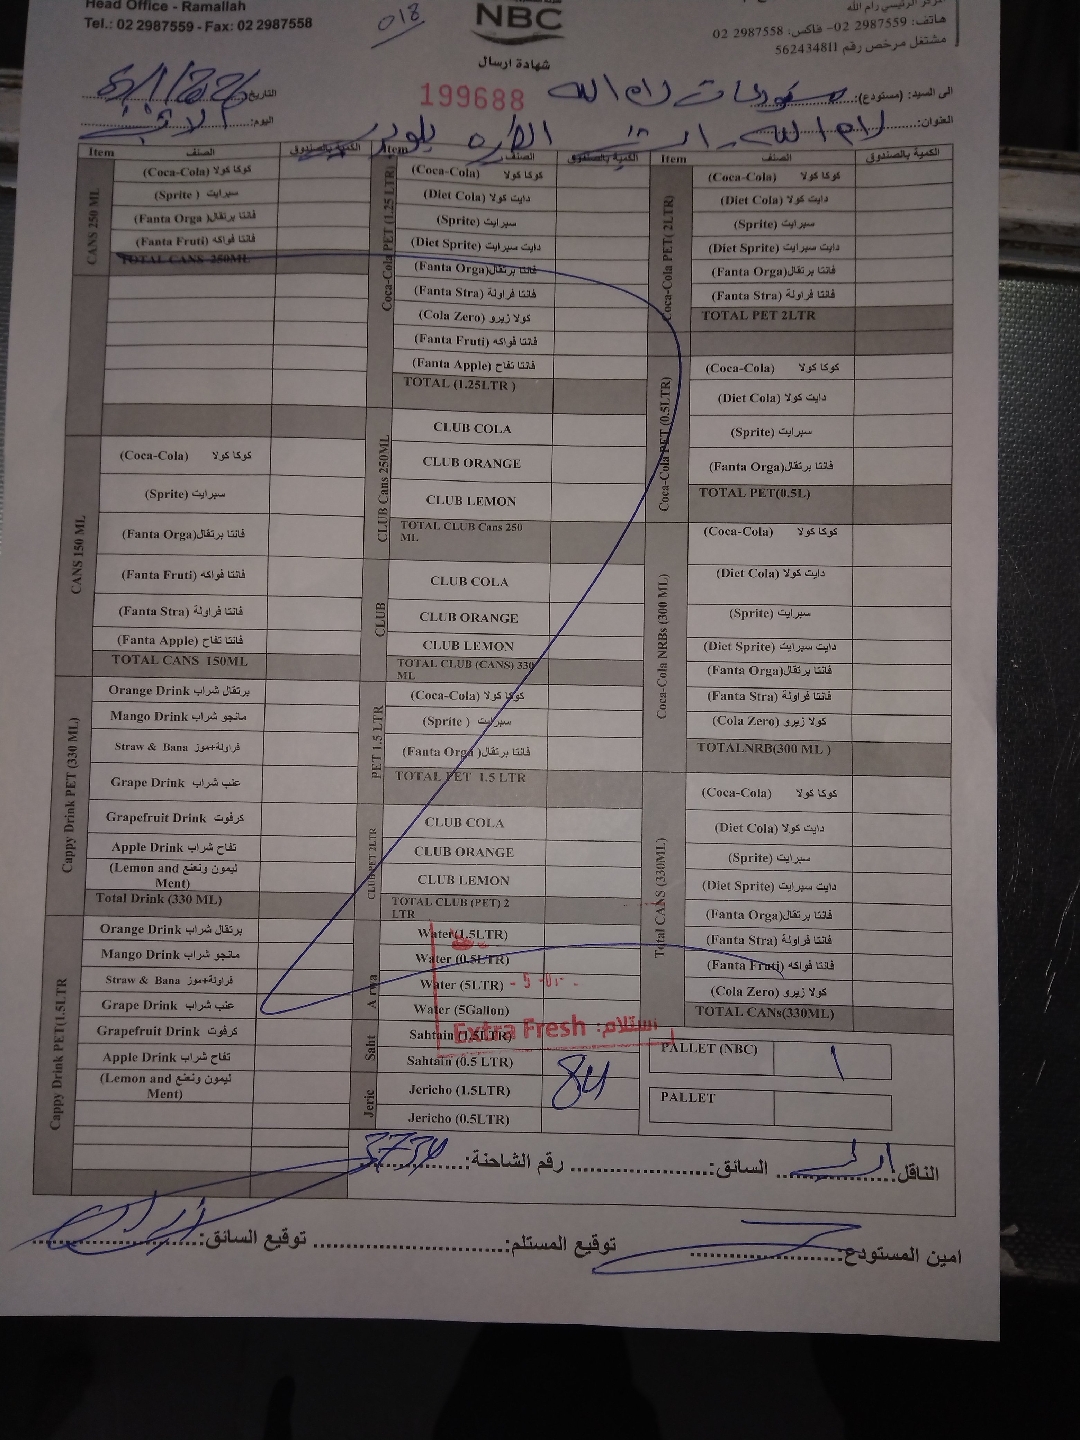 Head Office - Ramallah
Tel.: 02 2987559 - Fax: 02 2987558
018
NBC
المركز الرئيسي رام الله
هاتف: 2987559 02- فاكس: 2987558 02
مشتغل مرخص رقم 562434811
شهادة ارسال
199688
الى السيد: (مستودع): مستودعات رام الله
التاريخ:
العنوان: رام الله
اليوم: الاثنين
Item الصنف الكمية بالصندوق
CANS 250 ML
(Coca-Cola) كوكا كولا
(Sprite ) سبرايت
(Fanta Orga )فانتا برتقال
(Fanta Fruti) فانتا فواكه
TOTAL CANS 250ML
CANS 150 ML
(Coca-Cola) كوكا كولا
(Sprite) سبرايت
(Fanta Orga)فانتا برتقال
(Fanta Fruti) فانتا فواكه
(Fanta Stra) فانتا فراولة
(Fanta Apple) فانتا تفاح
TOTAL CANS 150ML
Cappy Drink PET (330 ML)
Orange Drink برتقال شراب
Mango Drink مانجو شراب
Straw & Bana فراولة+موز
Grape Drink عنب شراب
Grapefruit Drink كرفوت
Apple Drink تفاح شراب
(Lemon and ليمون ونعنع
Ment)
Total Drink (330 ML)
Cappy Drink PET(1.5LTR
Orange Drink برتقال شراب
Mango Drink مانجو شراب
Straw & Bana فراولة+موز
Grape Drink عنب شراب
Grapefruit Drink كرفوت
Apple Drink تفاح شراب
(Lemon and ليمون ونعنع
Ment)
Item الصنف الكمية بالصندوق
Coca-Cola PET (1.25 LTR)
(Coca-Cola) كوكا كولا
(Diet Cola) دايت كولا
(Sprite) سبرايت
(Diet Sprite) دايت سبرايت
(Fanta Orga)فانتا برتقال
(Fanta Stra) فانتا فراولة
(Cola Zero) كولا زيرو
(Fanta Fruti) فانتا فواكه
(Fanta Apple) فانتا تفاح
TOTAL (1.25LTR )
CLUB Cans 250ML
CLUB COLA
CLUB ORANGE
CLUB LEMON
TOTAL CLUB Cans 250
ML
CLUB
CLUB COLA
CLUB ORANGE
CLUB LEMON
TOTAL CLUB (CANS) 330
ML
PET 1.5 LTR
(Coca-Cola) كوكا كولا
(Sprite ) سبرايت
(Fanta Orga )فانتا برتقال
TOTAL PET 1.5 LTR
CLUB PET 2LTR
CLUB COLA
CLUB ORANGE
CLUB LEMON
TOTAL CLUB (PET) 2
LTR
Arwa
Water(1.5LTR)
Water (0.5LTR)
Water (5LTR)
Water (5Gallon)
Saht
Sahtain (1.5LTR)
Sahtain (0.5 LTR)
Jeric
Jericho (1.5LTR) 84
Jericho (0.5LTR)
Extra Fresh استلام:
Item الصنف الكمية بالصندوق
Coca-Cola PET( 2LTR)
(Coca-Cola) كوكا كولا
(Diet Cola) دايت كولا
(Sprite) سبرايت
(Diet Sprite) دايت سبرايت
(Fanta Orga)فانتا برتقال
(Fanta Stra) فانتا فراولة
TOTAL PET 2LTR
Coca-Cola PET (0.5LTR)
(Coca-Cola) كوكا كولا
(Diet Cola) دايت كولا
(Sprite) سبرايت
(Fanta Orga)فانتا برتقال
TOTAL PET(0.5L)
Coca-Cola NRBs (300 ML)
(Coca-Cola) كوكا كولا
(Diet Cola) دايت كولا
(Sprite) سبرايت
(Diet Sprite) دايت سبرايت
(Fanta Orga)فانتا برتقال
(Fanta Stra) فانتا فراولة
(Cola Zero) كولا زيرو
TOTALNRB(300 ML )
Total CANS (330ML)
(Coca-Cola) كوكا كولا
(Diet Cola) دايت كولا
(Sprite) سبرايت
(Diet Sprite) دايت سبرايت
(Fanta Orga)فانتا برتقال
(Fanta Stra) فانتا فراولة
(Fanta Fruti) فانتا فواكه
(Cola Zero) كولا زيرو
TOTAL CANs(330ML)
PALLET (NBC) 1
PALLET
الناقل السائق: رقم الشاحنة:
امين المستودع: توقيع المستلم: توقيع السائق: